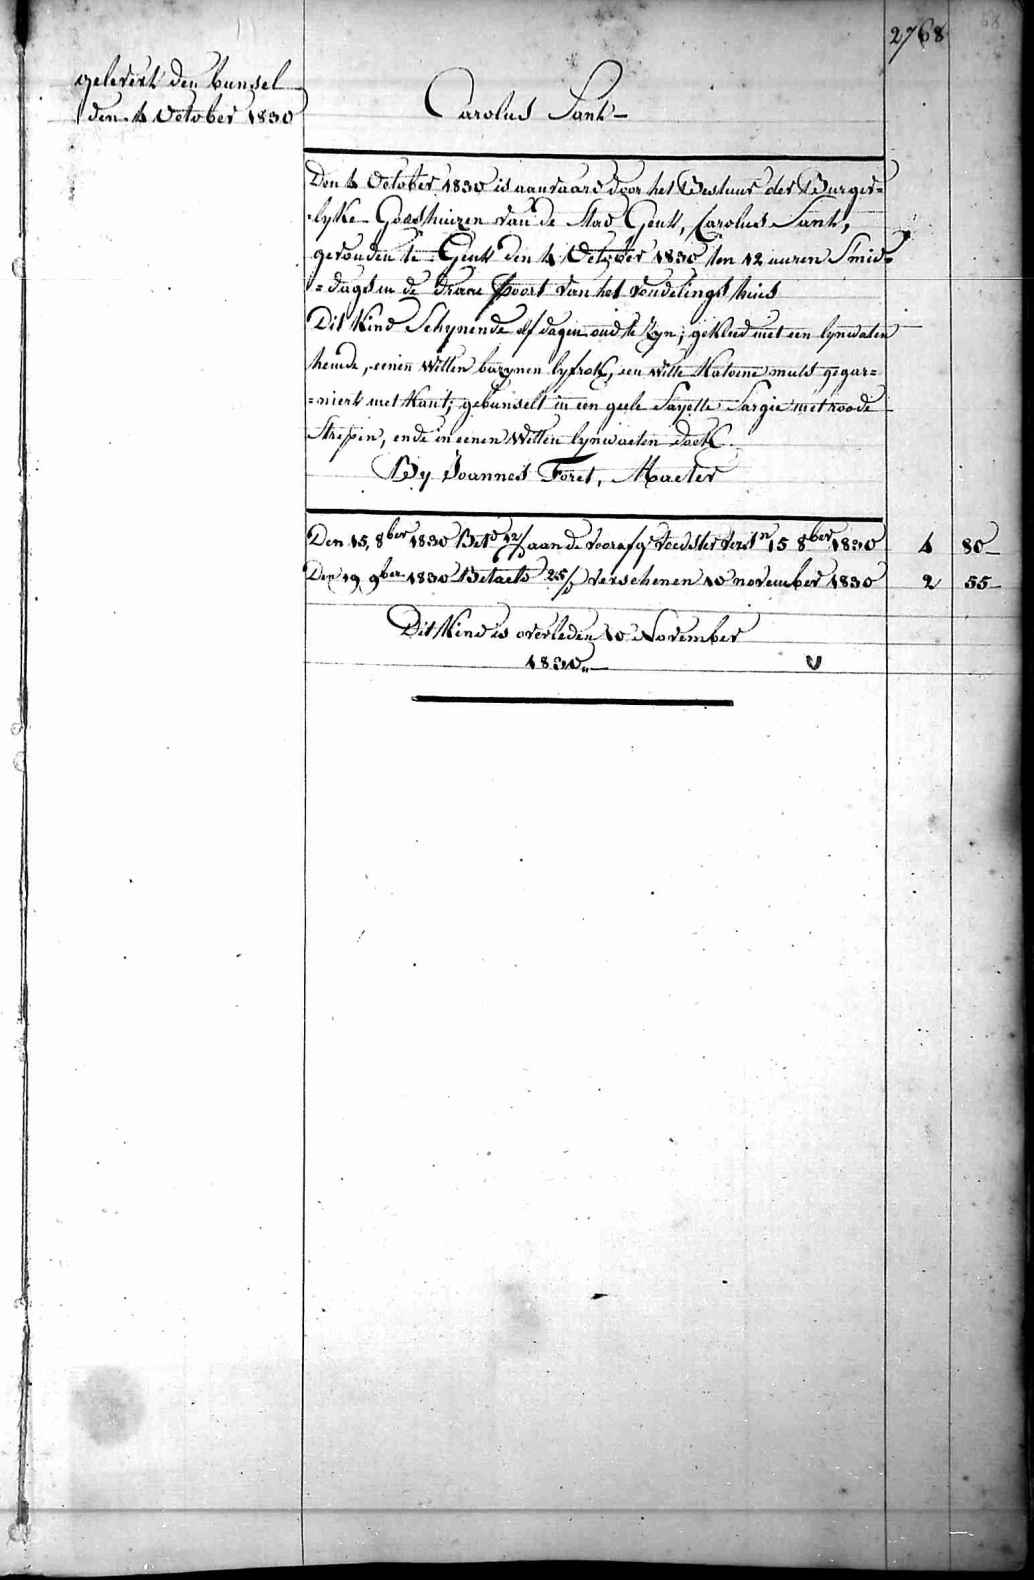 2768
68
gelevert den bunsel
den 4 October 1830
Carolus Sant
Den 4 October 1830 is aanvaard door het Bestuur der Burger=
lyke Godshuizen van de Stad Gent, Carolus Sant,
gevonden te Gent den 4 October 1830 ten 12 uuren Smid=
=dags in de Draai Poort van het vondelings huis
Dit Kind Schynende elf dagen oud te Zyn; gekleed met een lynwaten
hemde, eenen witten bazynen lyfrok, een witte Katoene muts gegar=
=niert met Kant; gebunselt in een geele Sayette Sargie met roode
Strepen, ende in eenen witten lynwaeten doek.
By Joannes Foret, Maeter
Den 15, 8ber 1830 Bet.d 12/ aan de voorafg.e voedster verst.n 15 8ber 1830 4 80
Den 19 9ber 1830 Betaelt 25/ verschenen 10 november 1830 2 55
Dit Kind is overleden 10 November
1830